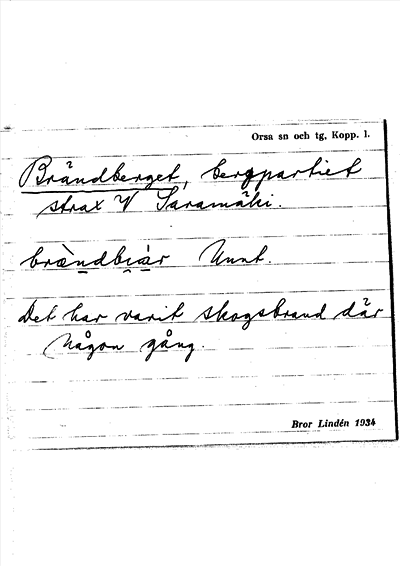 Orsa sn och tg, Kopp. l.
Brändberget, bergpartiet
strax V Saramäki.
brä̀ndbiár Unnt.
Det har varit skogsbrand där
någon gång.
Bror Lindén 1934